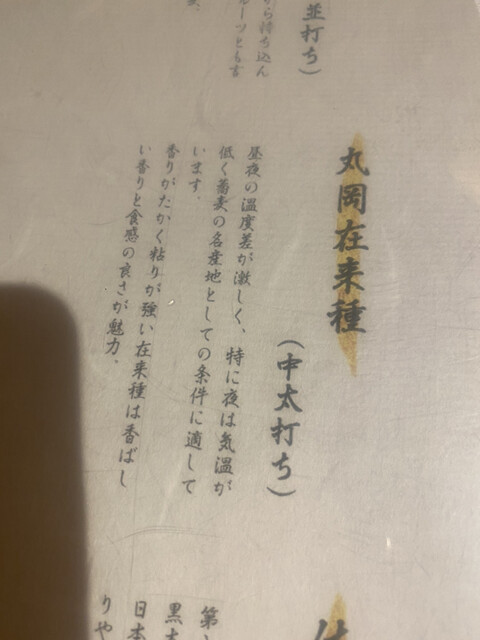 並打ち）
ら持ち込ん
ルーツとも言
丸岡在来種
（中太打ち）
昼夜の温度差が激しく、特に夜は気温が
低く蕎麦の名産地としての条件に適して
います。
香りがたかく粘りが強い在来種は香ばし
い香りと食感の良さが魅力。
第
黒
日本
りや